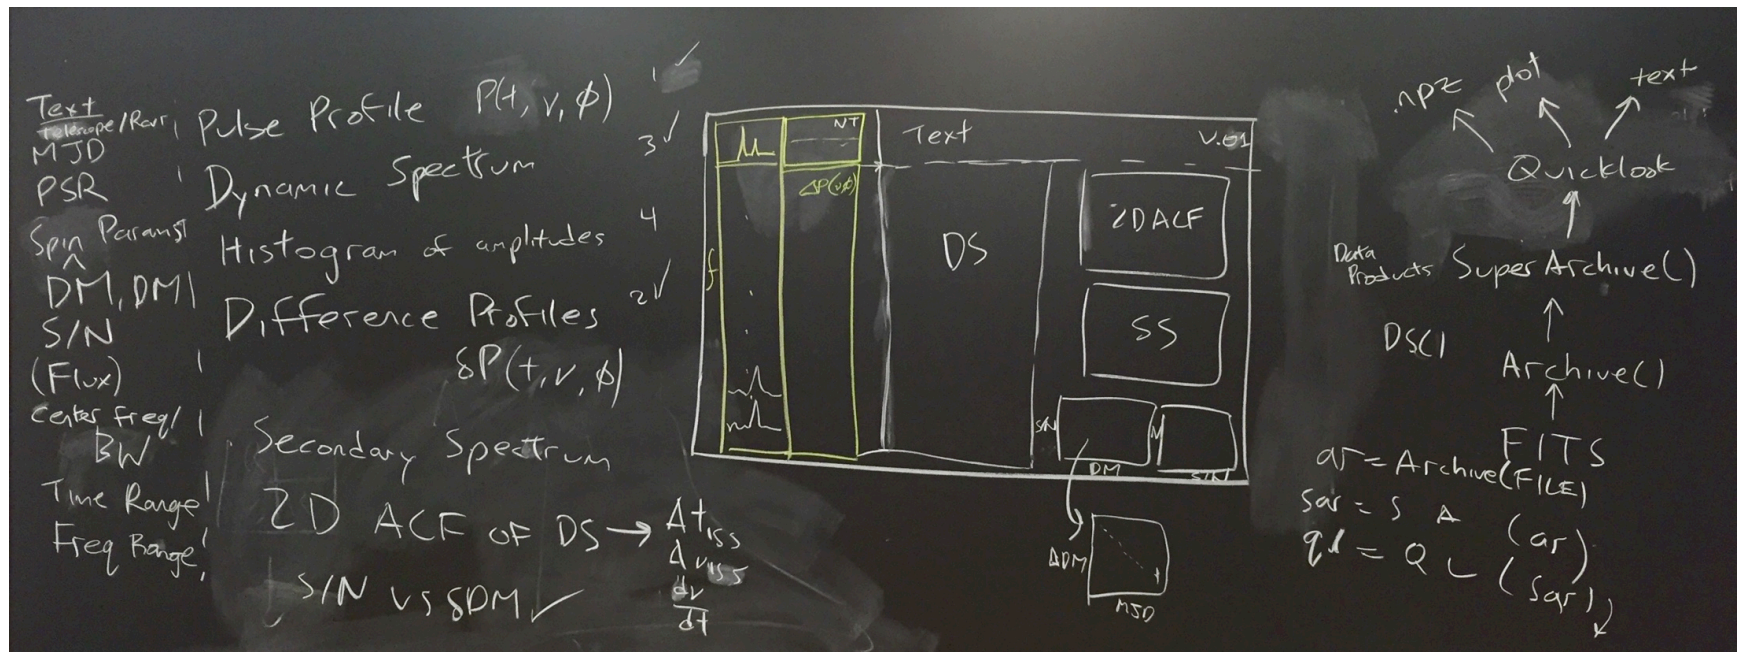 Text
Telescope/Rcvr
MJD
PSR
Spin Params
DM, DM1
S/N
(Flux)
Center Freq/
BW
Time Range
Freq Range
Pulse Profile P(t, ν, φ)
Dynamic Spectrum
Histogram of amplitudes
Difference Profiles
δP(t, ν, φ)
Secondary Spectrum
2D ACF OF DS → Δt ISS
Δν ISS
dν/dt
S/N vs δDM ✓
1 ✓
3 ✓
4
2 ✓
NT
ΔP(ν,φ)
f
Text V.01
DS
2D ACF
SS
S/N
DM
S/N
ΔDM
MJD
.npz plot text
Quicklook
Data
Products SuperArchive()
DS()
Archive()
FITS
ar = Archive(FILE)
sar = S A (ar)
ql = Q L (sar)